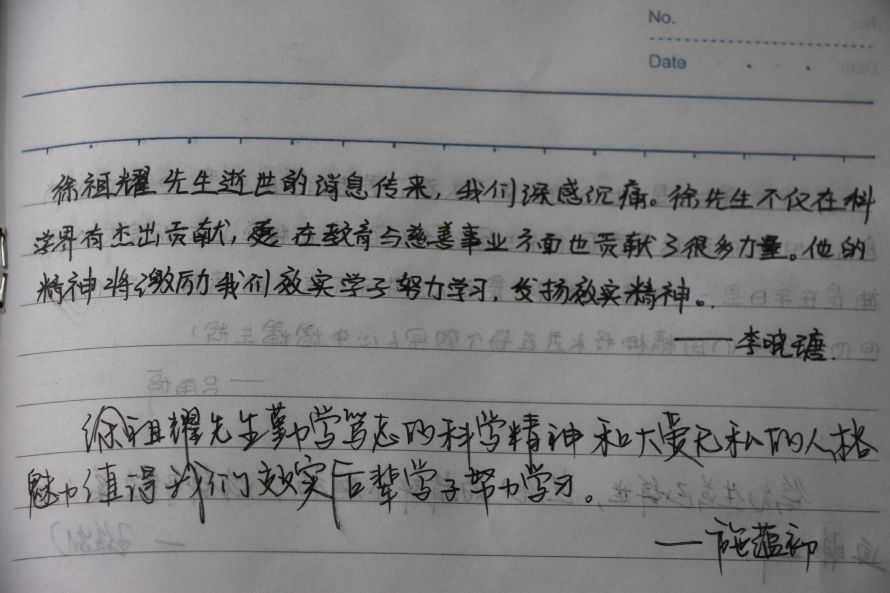 No.
Date
徐祖耀先生逝世的消息传来，我们深感沉痛。徐先生不仅在科
学界有杰出贡献，更在教育与慈善事业方面也贡献了很多力量。他的
精神将激励我们效实学子努力学习，发扬效实精神。
——李晓瑭
徐祖耀先生勤学笃志的科学精神和大爱无私的人格
魅力值得我们效实后辈学子努力学习。
——施蕴初